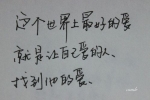 这个世界上最好的爱
就是让自己爱的人、
找到他的爱.